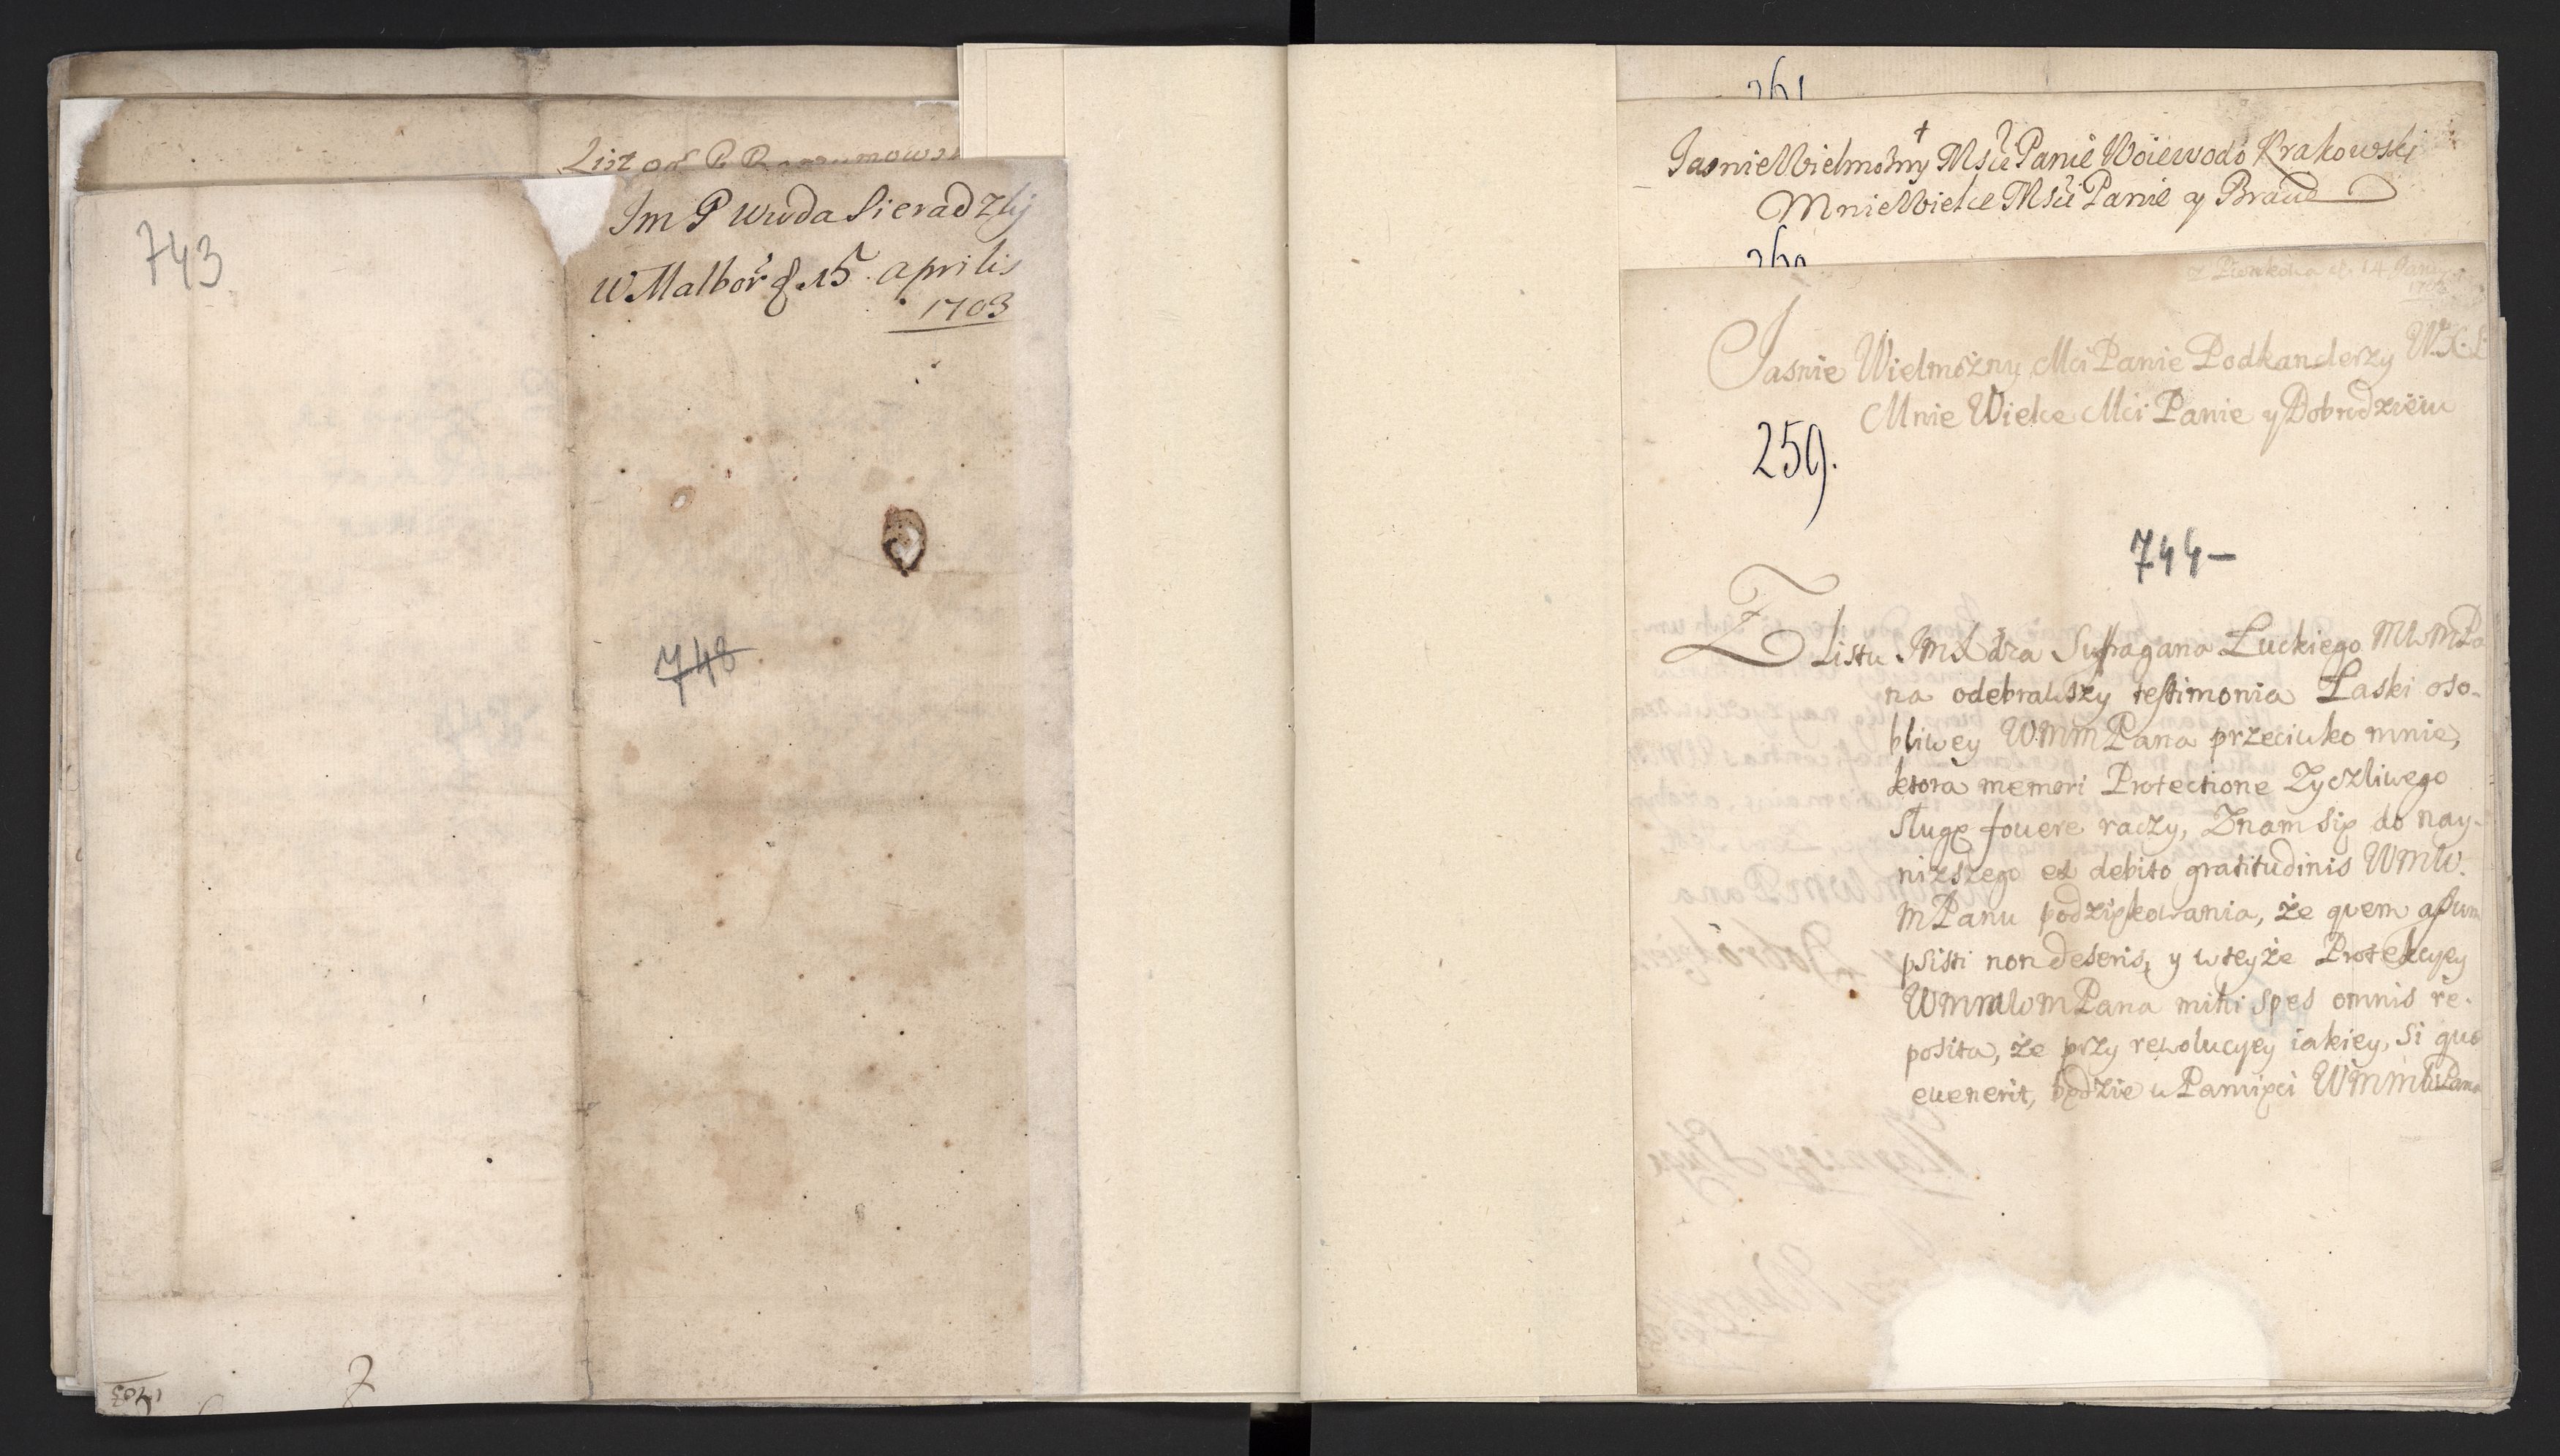 List od P.
743
Im P Wwda Sieradzky
W Malbor d. 15 aprilis
1703
748
1703
261
JasnieWielmożny Msći Panie Woiewodo Krakowski
MnieWielce Msći Panie y Bracie
260
d. 14 Jan
Jasnie Wielmożny Mći Panie Podkanclerzy W.X.L
Mnie Wielce Mći Panie y Dobrodzieiu
259.
744-
Z Listu Im Xdza Suffragana Łuckiego MWMPa
na odebrawszy testimonia Łaski oso-
bliwey WMMPana przeciwko mnie,
ktora memori Protectione Zyczliwego
sługę fovere raczy, Znam się do nay-
nizszego ex debito gratitudinis WMW.
MPanu podziękowania, że quem assum
psisti non deseris, y w teyże Protekcyey
WMMWMPana mihi spes omnis re-
posita, że przy rewolucyey iakiey, si quæ
evenerit, będzie w Pamięci WMMWPana